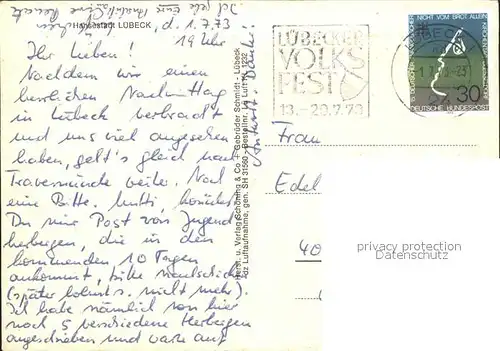 Hansestadt LÜBECK, d. 1.7.73
19 Uhr
Ihr Lieben!
Nachdem wir einen
herrlichen Nachmittag
in Lübeck verbracht
und uns viel angesehen
haben, geht's gleich nach
Travemünde weite. Noch
eine Bitte. Mutti,
Du mir Post von Jugend
herbergen, die in den
kommenden 10 Tagen
ankommt, bitte nachschicken
(später lohnt's nicht mehr).
Ich habe nämlich von hier
noch 5 verschiedene Herbergen
angeschrieben und warte auf
Antwort. Danke
Herst. u. Verlag Schöning & Co. + Gebrüder Schmidt - Lübeck
Agz Luftaufnahme, gen. SH 31560 - Bestellnr. Lu Luft N 1232
LÜBECKER
VOLKS
FEST
13.-29.7.73
NICHT VOM BROT ALLEIN
30
DEUTSCHE BUNDESPOST
Frau
Edel
40
privacy protection
Datenschutz